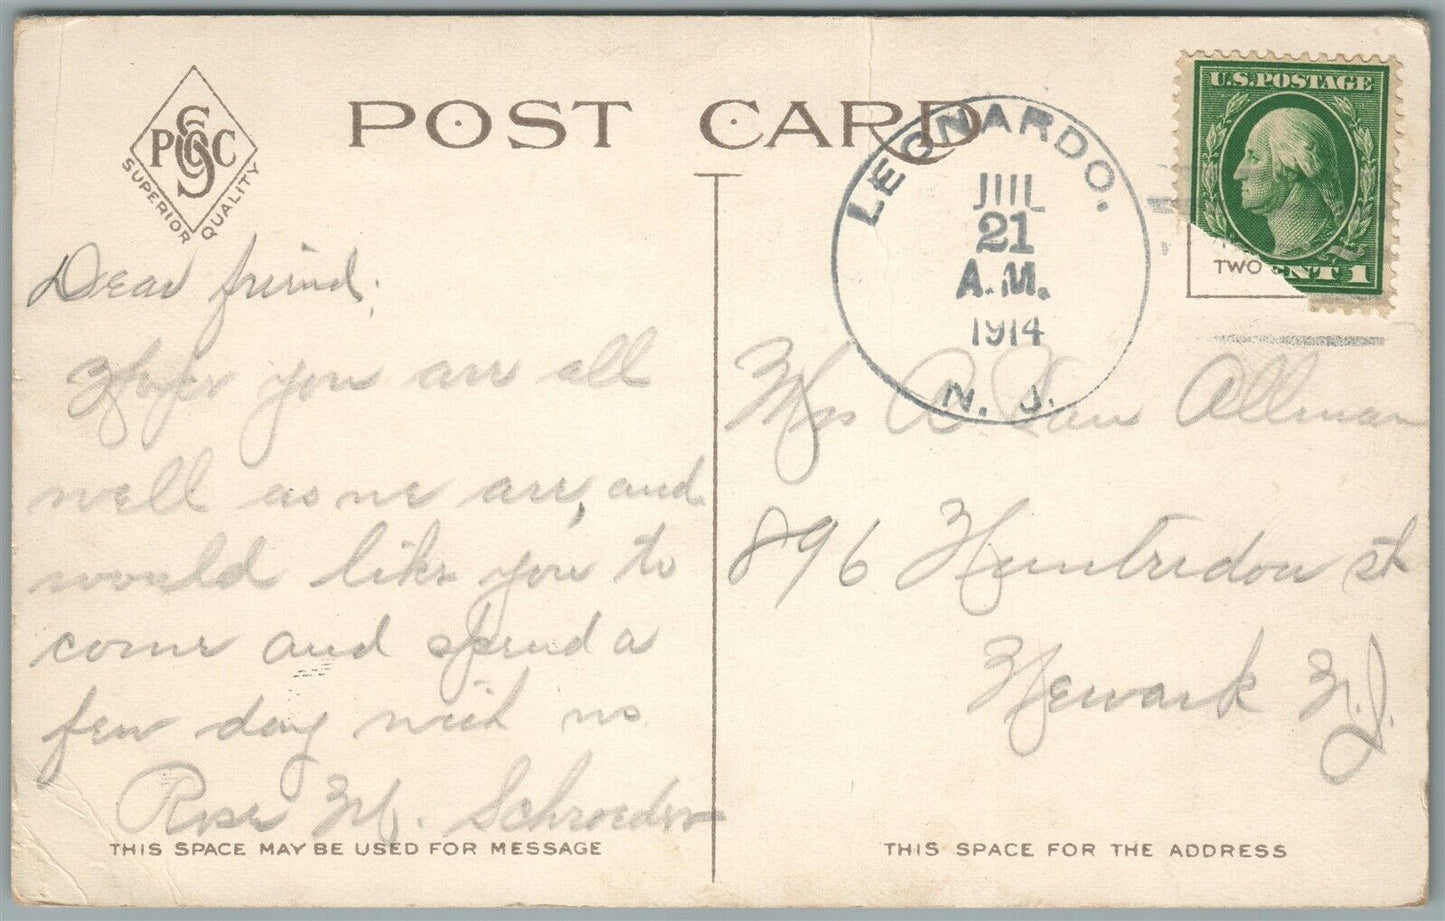 POST CARD
P S C
SUPERIOR QUALITY
U.S. POSTAGE
TWO
CENT 1
LEONARDO.
JUL
21
A.M.
1914
N. J.
Dear friend,
Hope you are all
well as we are, and
would like you to
come and spend a
few day with us
Rose M. Schroeder
Mrs A Van Allman
896 Huntridon st
Newark N.J.
THIS SPACE MAY BE USED FOR MESSAGE
THIS SPACE FOR THE ADDRESS